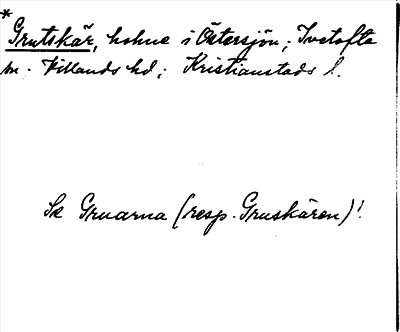 *Grutskär, holme i Östersjön; Ivetofta
sn. Villands hd; Kristianstads l.
Se Gruarna (resp. Gruskären)!